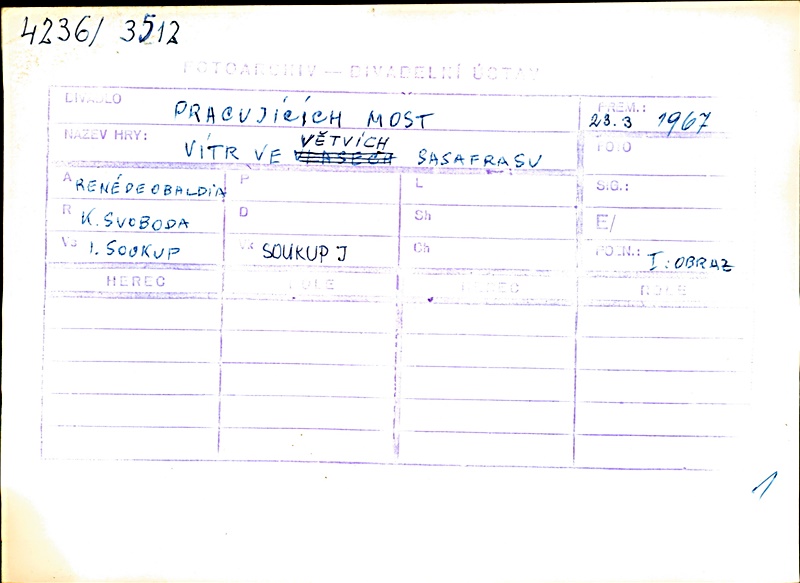 4236/ 3512
FOTOARCHIV — DIVADELNÍ ÚSTAV
DIVADLO PRACUJÍCÍCH MOST PREM.: 23.3 1967
NÁZEV HRY: VÍTR VE VLASECH VĚTVÍCH SASAFRASU FOTO
A RENÉ DE OBALDIA P L SIG.:
R K. SVOBODA D Sh E/
Vs I. SOUKUP SOUKUP J Ch POZN.: I. OBRAZ
HEREC ROLE HEREC ROLE
1